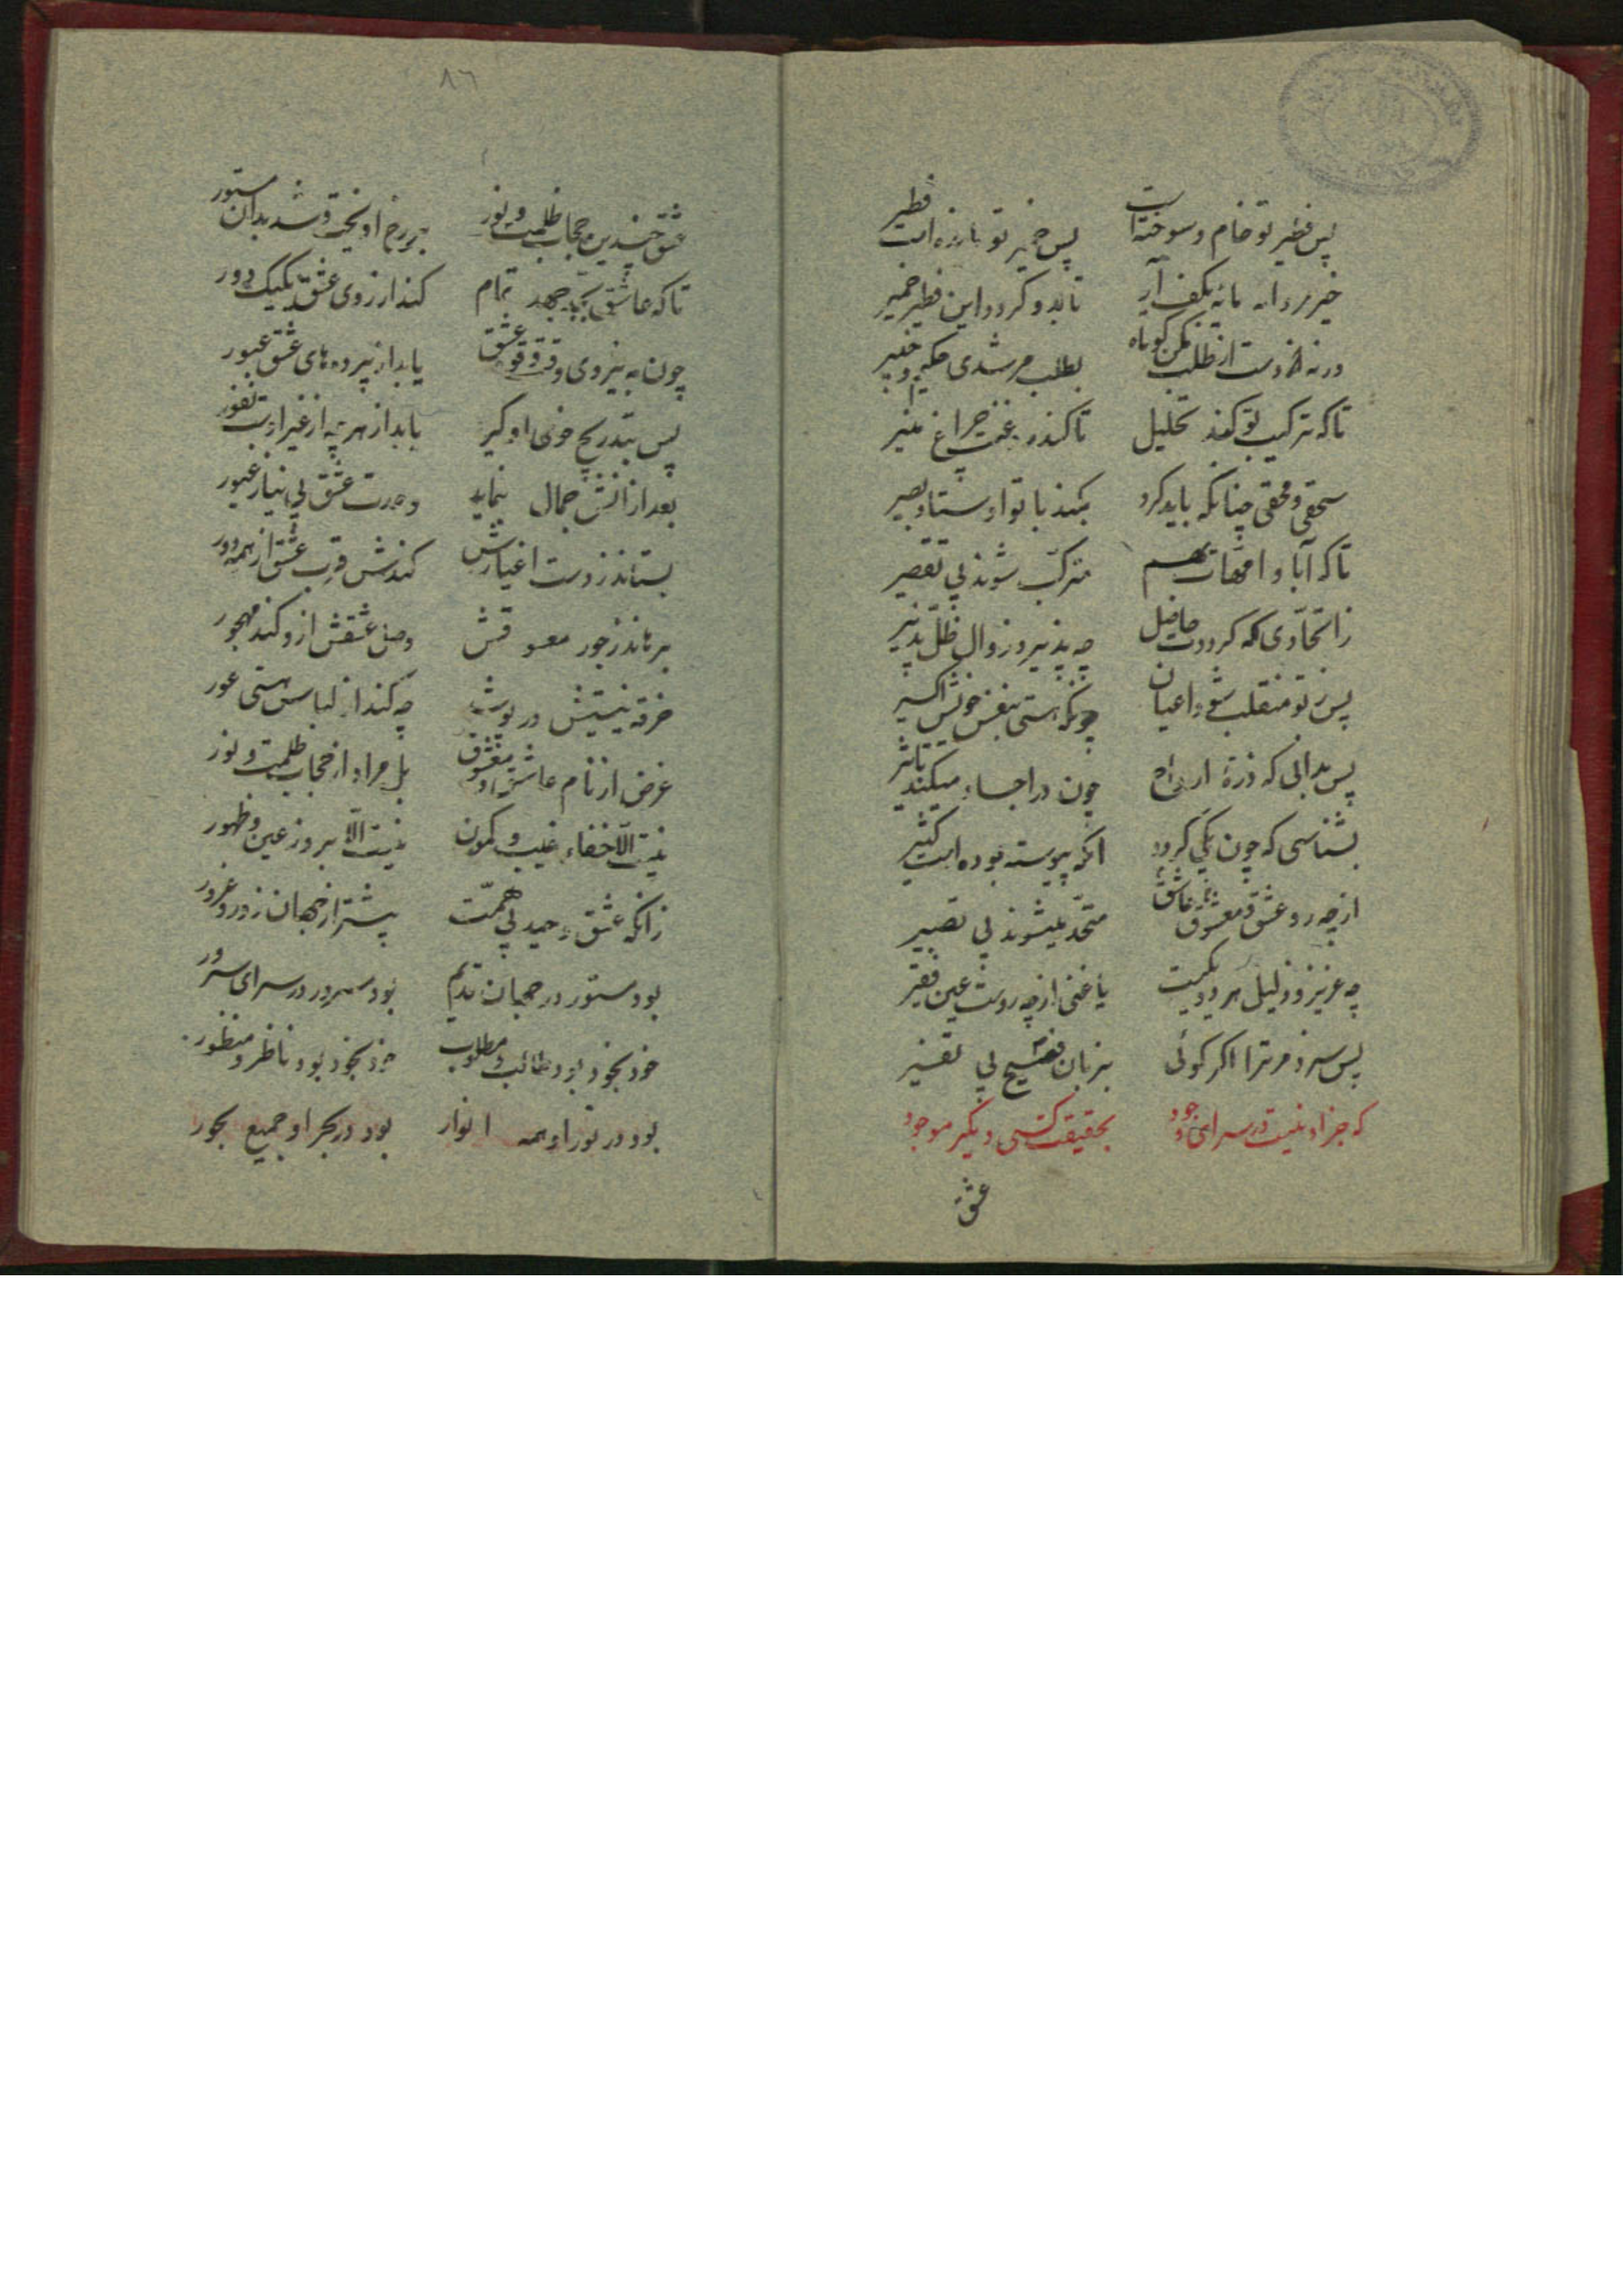 پس فطیر تو خام و سوخته است پس خمیر تو تازه است فطیر
خیز مردانه مایهٔ بکف آر تا بدو گردد این فطیر خمیر
ورنه دست از طلب مکن کوتاه بطلب مرشدی حکیم و خبیر
تا که ترکیب تو کند تحلیل تا کند روغنت چراغ منیر
سحقی و محقی چنانکه باید کرد بکند با تو اوستاد بصیر
تا که آبا و امهات بهم مترکب شوند بی تقصیر
ز اتحادی که گرددت حاصل چه پذیرد زوال ظل پذیر
پس ز تو منقلب شود اعیان چونکه هستی بنفس خویش اکسیر
پس بدانی که ذرهٔ ارواح چون در اجساد میکند تاثیر
بشناسی که چون یکی گردد آنکه پیوسته بوده است کثیر
از چه رو عشق و معشوق عاشق متحد میشوند بی تصییر
چه عزیز و ذلیل هر دو یکیست یا غنی از چه روست عین فقیر
پس سزد مر ترا اگر گوئی بزبان فصیح بی تفسیر
که جز او نیست در سرای وجود بحقیقت کسی دیگر موجود
عشق
٨٦
عشق چندین حجاب ظلمت و نور بر رخ آویخت و شد بدان مستور
تا که عاشق بجد و جهد تمام کند از روی عشق یکیک دور
چون به نیروی و قوت عشق یابد از پرده های عشق عبور
پس بتدریج خوی او گیر یابد از هر چه از غیر اوست نفور
بعد از آنش جمال بنماید وحدت عشق بی نیاز غیور
بستاند ز دست اغیارش کندش قرب عشق از همه دور
برهاند ز جور معشوقش وصل عشقش ازو کند مهجور
خرقه نیستیش در پوشد چه کند از لباس هستی عور
غرض از نام عاشق و معشوق بل مراد از حجاب ظلمت و نور
نیست الا خفاء غیب و کمون نیست الا بروز عین و ظهور
زانکه عشق وحید بی همت پیشتر از جهان زور و غرور
بود مستور در جهان قدیم بود مسرور در سرای سرور
خود بخود بود طالب و مطلوب خود بخود بود ناظر و منظور
بود در نور او همه انوار بود در بحر او جمیع بحور